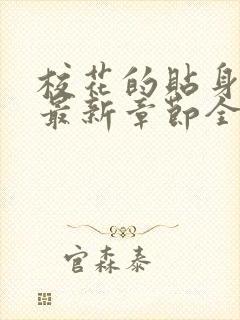 校花的贴身
最新章节全
官森泰